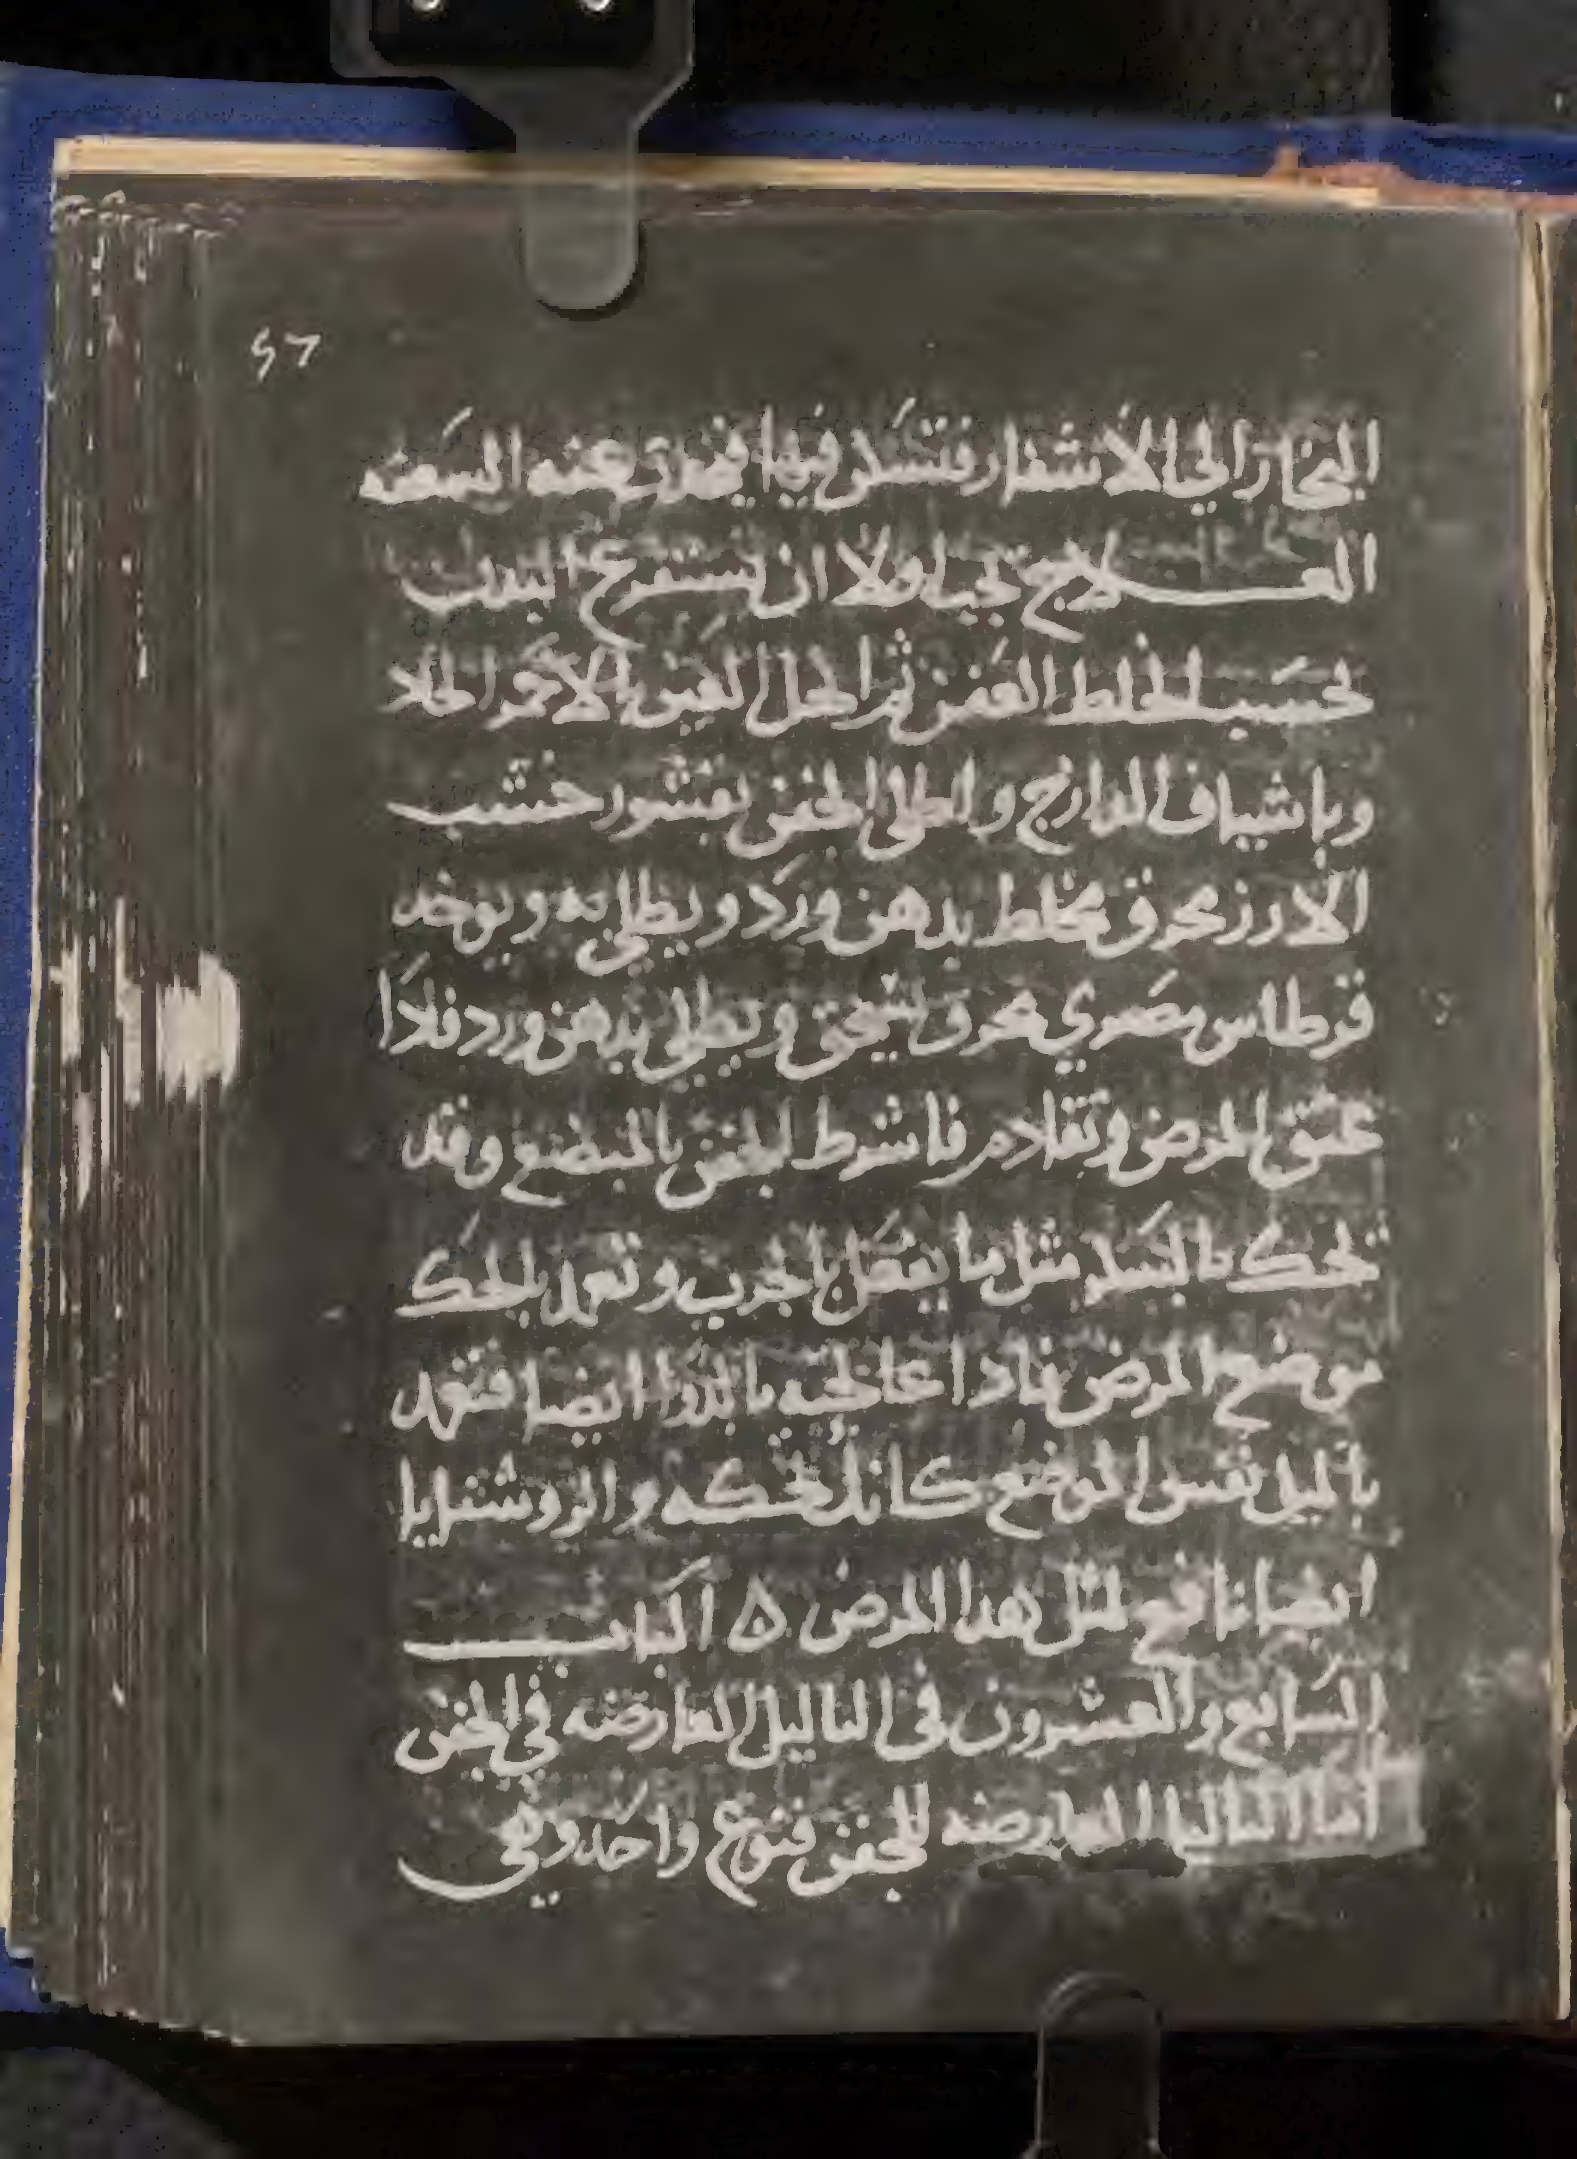 ٤٦
البخار الي الاشفار فتسد فيها فيحدث عنه السعفه
العلاج يجب اولا ان يستفرغ البدن
بحسب الخلط العفن ثم اكحل العين بالاحمر الحاد
وباشياف الدارج واطلى الجفن بقشور خشب
الارز محرق مخلط بدهن ورد ويطلي به ويوخد
قرطاس مصري محرق يسحق ويطلي بدهن ورد فادا
عتق المرض وتقادم فاشرط الجفن بالمبضع وقد
يحك بالسكر مثل ما يفعل بالجرب وتعمد بالحك
موضع المرض فاذا عالجته بالدوا ايضا فتعمد
بالميل نفس الموضع كانك تحكه والروشنايا
ايضا نافع لمثل هدا المرض ٥ الباب
السابع والعشرون في الثاليل العارضه في الجفن
اما الثاليل العارضه للجفن فنوع واحد وهي